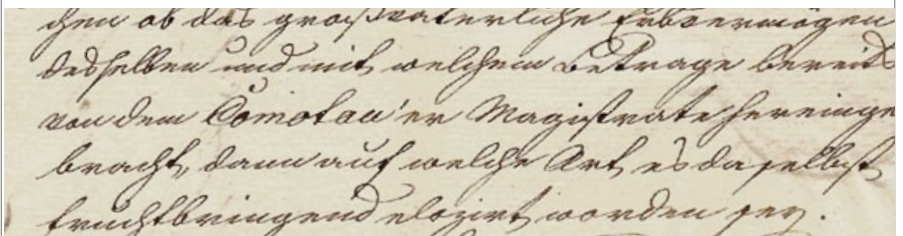 chen ob das großväterliche Erbvermögen
desselben und mit welchem Betrage bereits
von dem Comotau'er Magistrate hereinge
bracht, dann auf welche Art es daselbst
fruchtbringend elozirt worden sey.